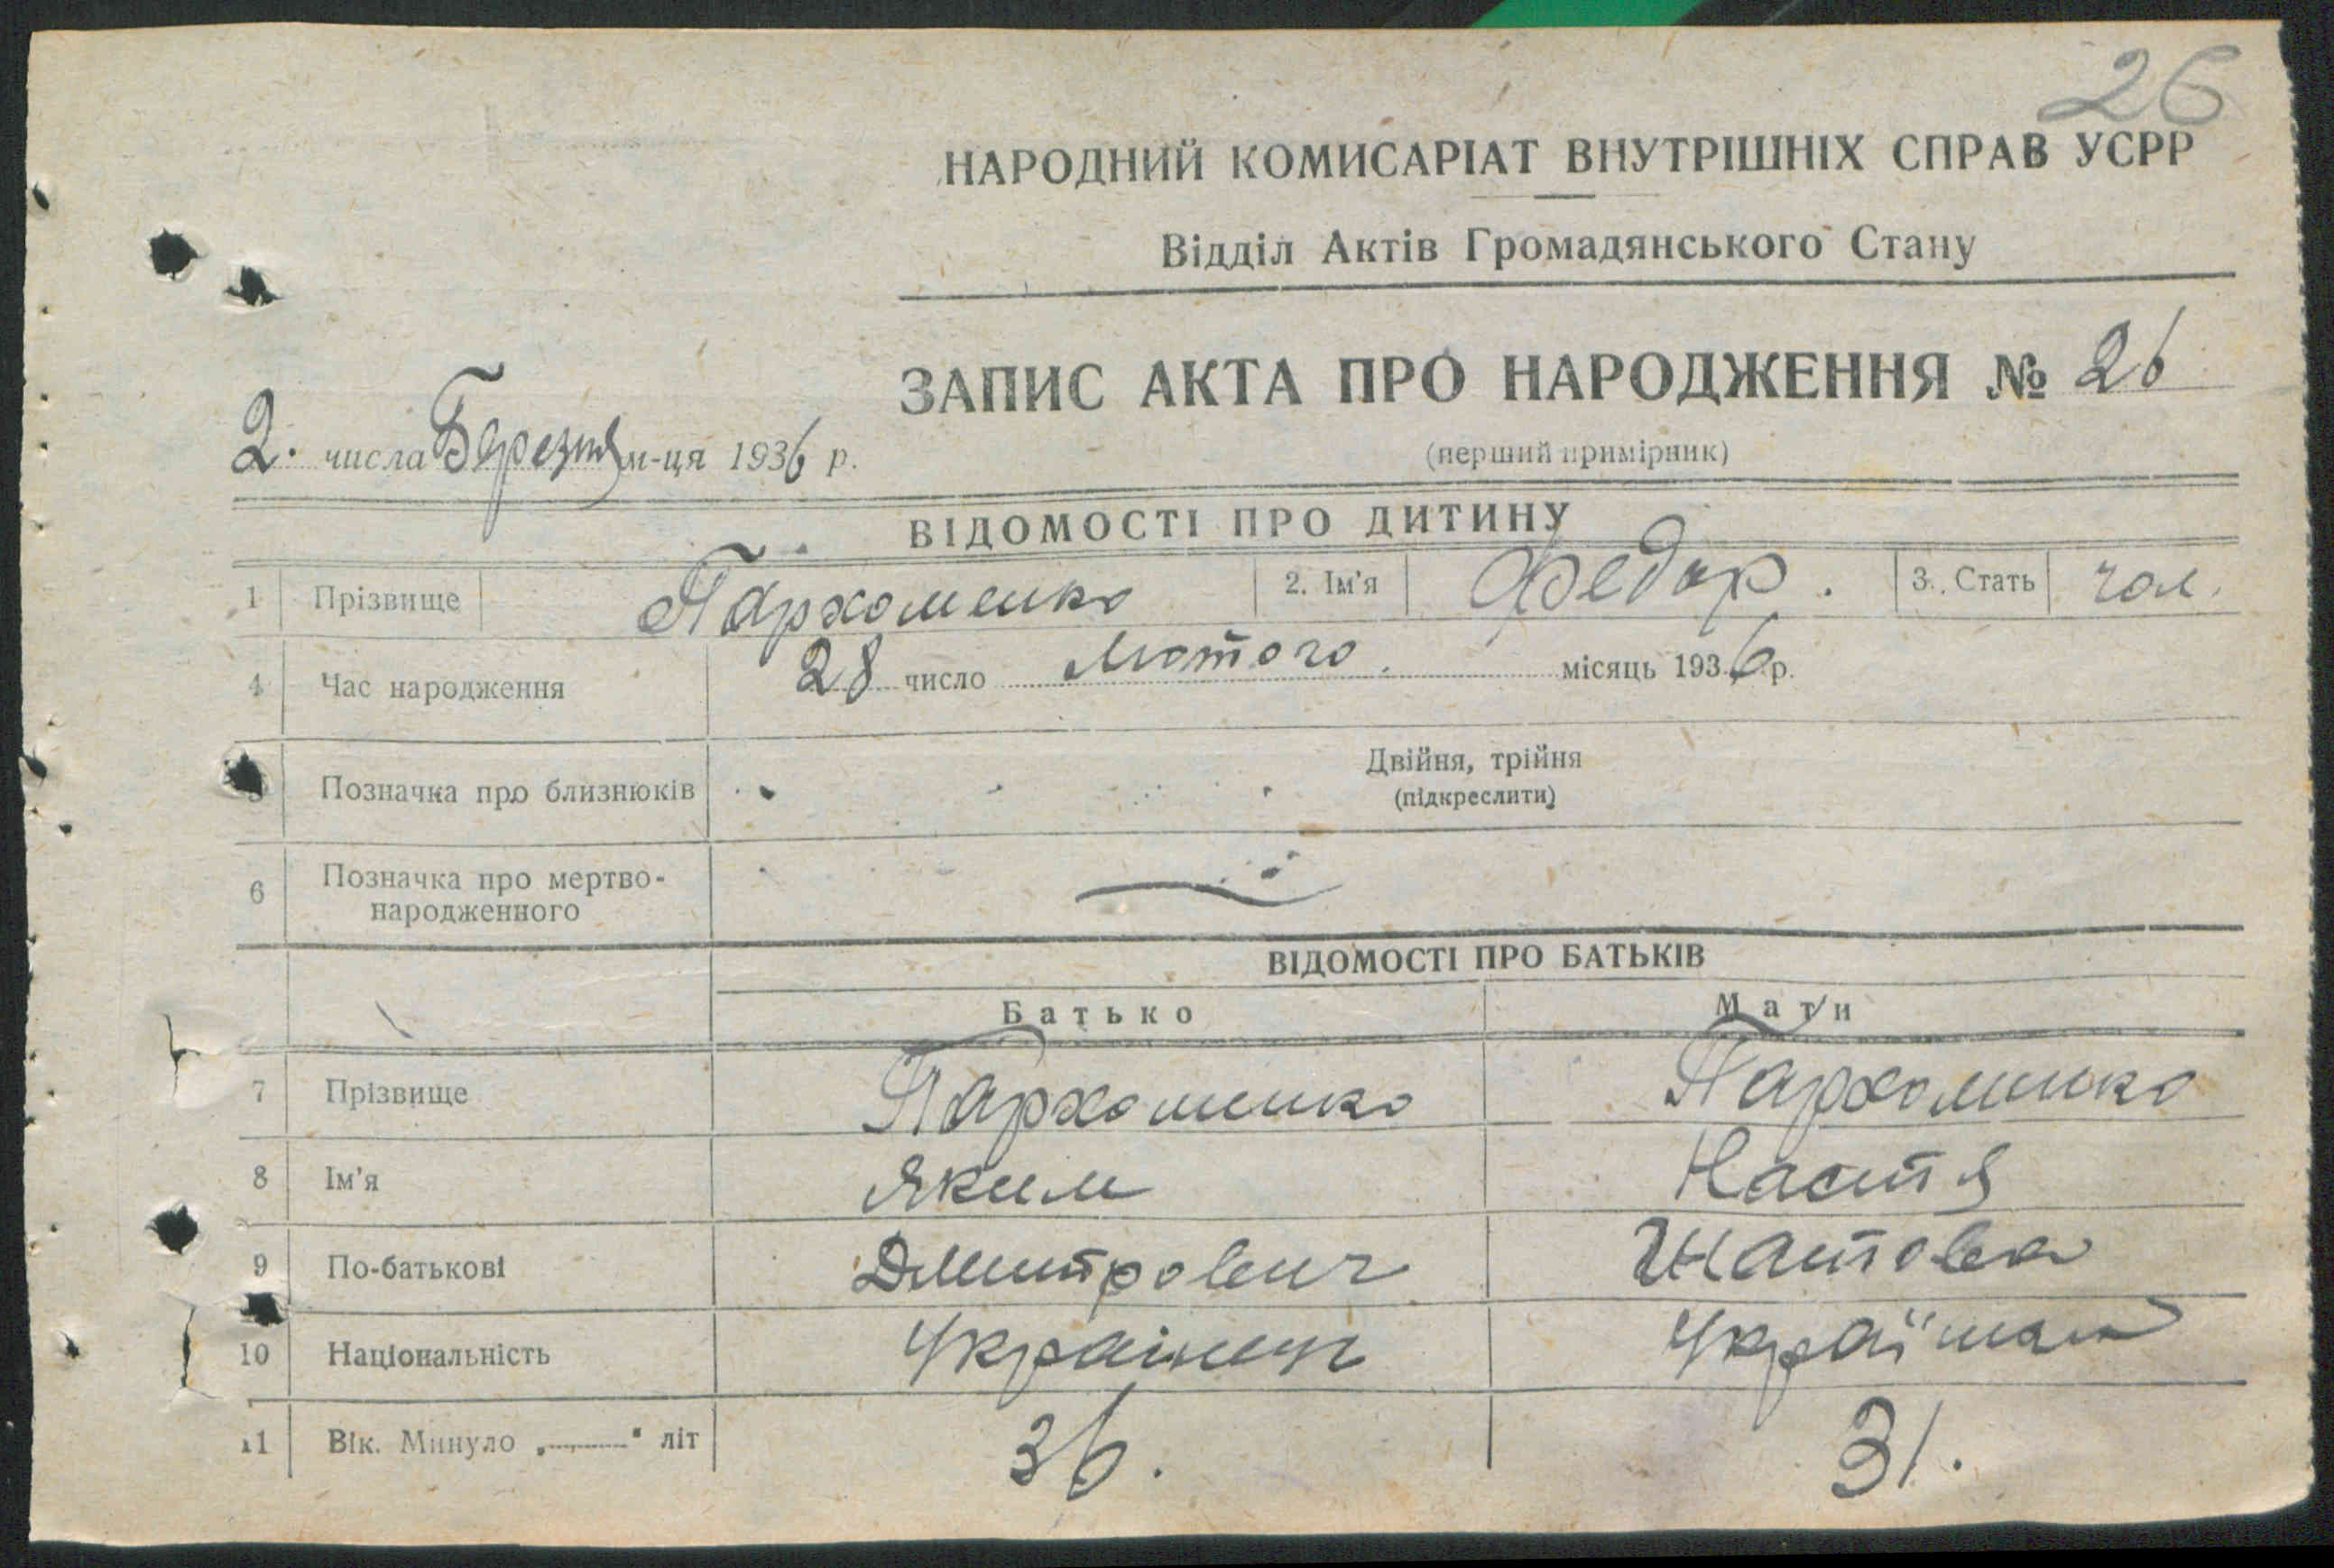 26
НАРОДНИЙ КОМИСАРІАТ ВНУТРІШНІХ СПРАВ УСРР
Відділ Актів Громадянського Стану
ЗАПИС АКТА ПРО НАРОДЖЕННЯ № 26
2. числа Березня м-ця 1936 р.
(перший примірник)
ВІДОМОСТІ ПРО ДИТИНУ
1 Прізвище Пархоменко 2. Ім'я Федор. 3. Стать чол.
4 Час народження 28 число Лютого. місяць 1936 р.
5 Позначка про близнюків Двійня, трійня
(підкреслити)
6 Позначка про мертво-
народженного
ВІДОМОСТІ ПРО БАТЬКІВ
Батько Мати
7 Прізвище Пархоменко Пархоменко
8 Ім'я Яким Настя
9 По-батькові Дмитрович
10 Національність Українец Українка
11 Вік. Минуло „ " літ 36. 31.